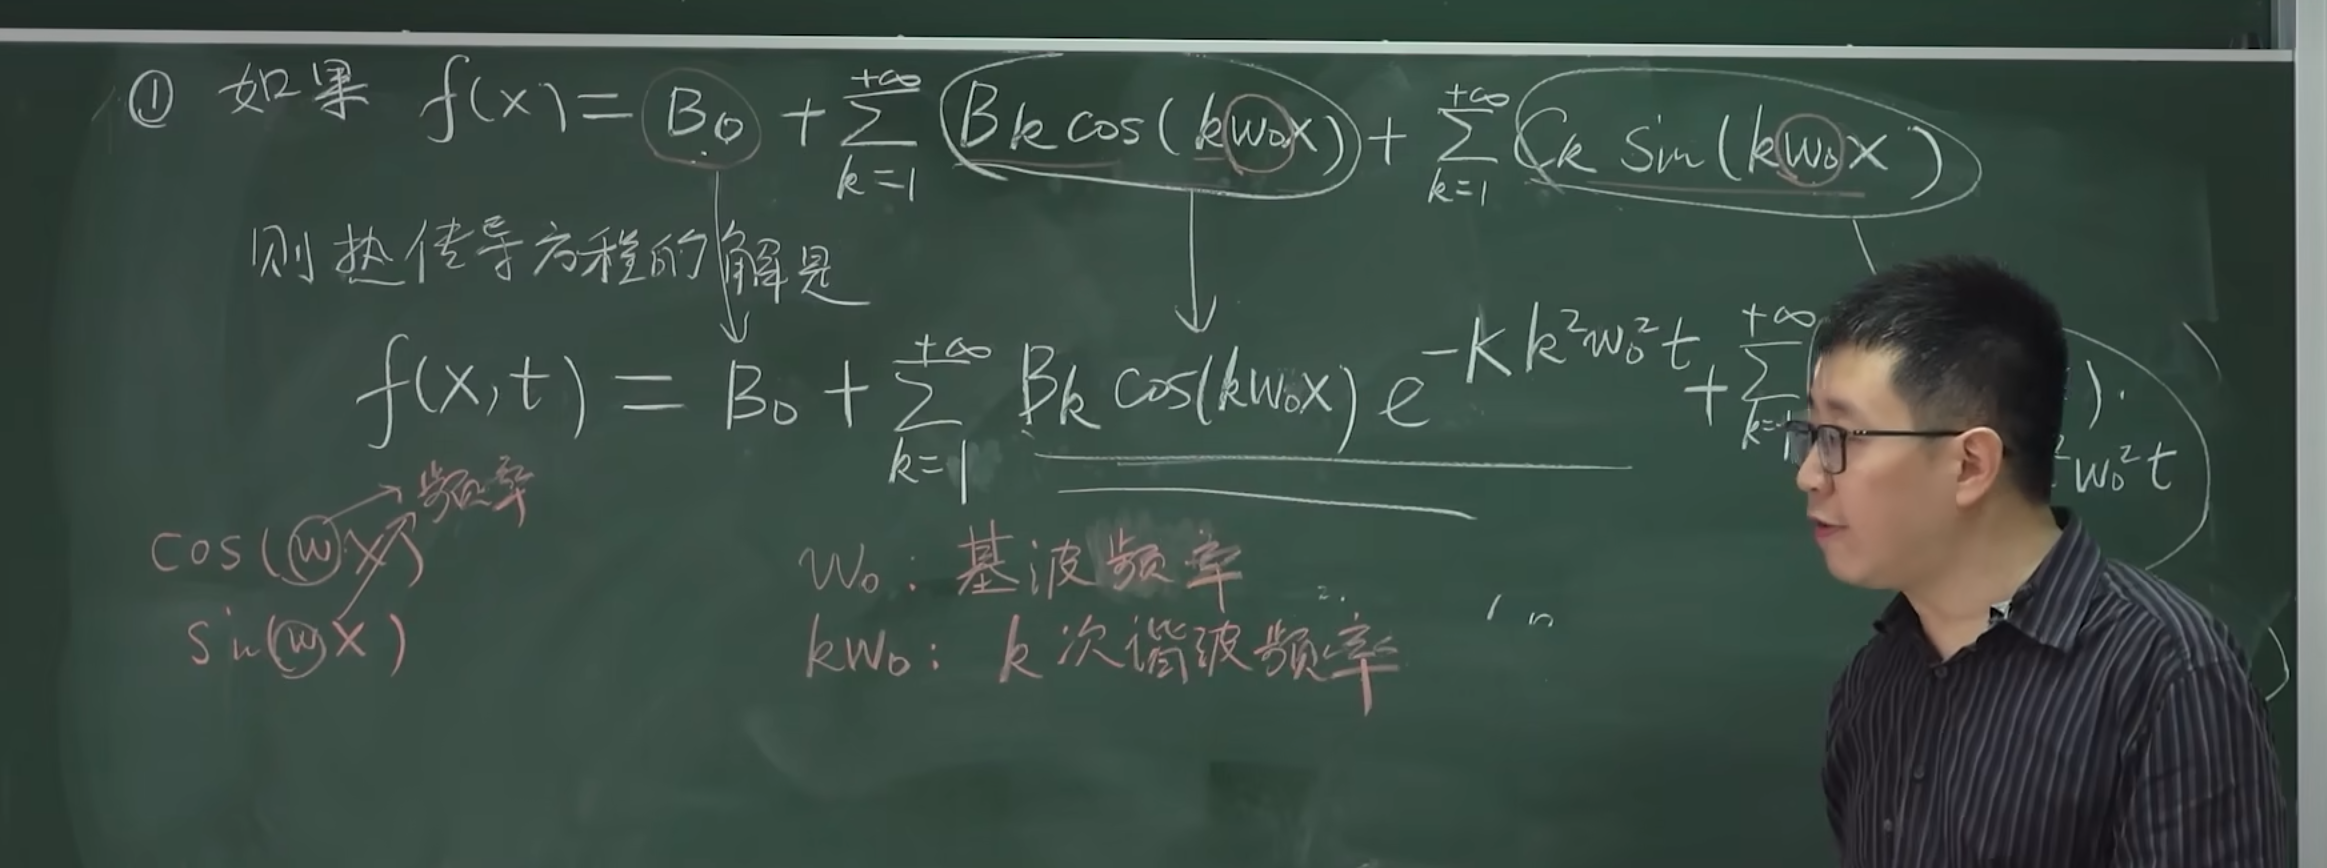 ① 如果 f(x) = B₀ + ∑_{k=1}^{+∞} Bk cos(kw₀x) + ∑_{k=1}^{+∞} Ck sin(kw₀x)
则热传导方程的解是
f(x,t) = B₀ + ∑_{k=1}^{+∞} Bk cos(kw₀x) e^{-Kk²w₀²t} + ∑_{k=1}^{+∞} ) · ²w₀²t
cos(wx) → 频率
sin(wx)
w₀: 基波频率
kw₀: k次谐波频率